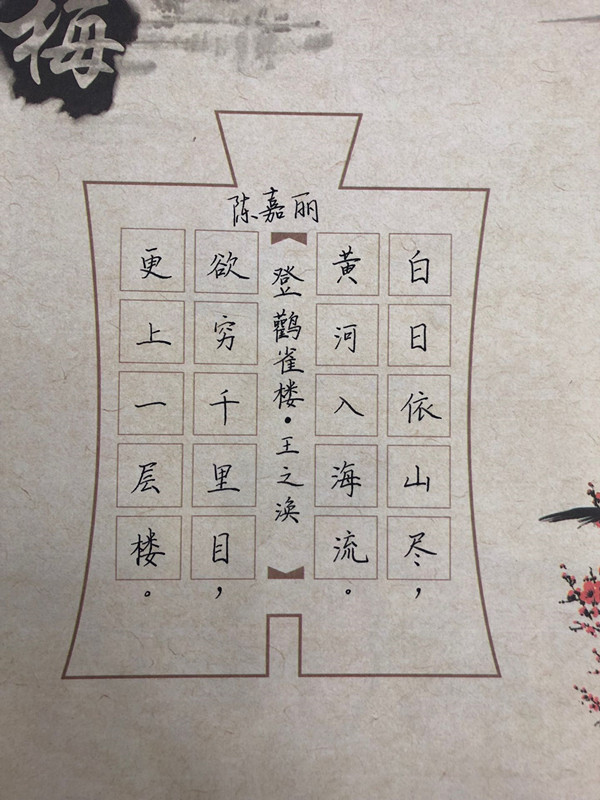 梅
陈嘉丽
白日依山尽，
黄河入海流。
登鹳雀楼·王之涣
欲穷千里目，
更上一层楼。